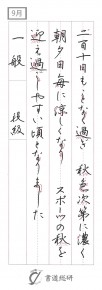 9月
二百十日もことなく過ぎ 秋色次第に濃く
朝夕日毎に涼しくなり スポーツの秋を
迎え過ごしやすい頃となりました
一般 後級
書道総研